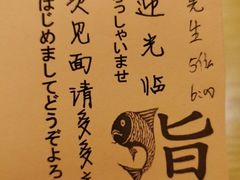 先生 5位
6:00
旨
迎光临
っしゃいませ
次见面请多多
はじめましてどうぞよろ